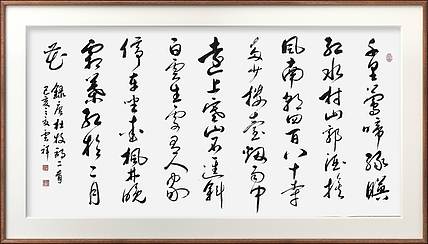 千里鶯啼緑暎
紅水村山郭酒旗
風南朝四百八十寺
多少樓臺烟雨中
遠上寒山石逕斜
白雲生處有人家
停車坐愛楓林晚
霜葉紅於二月
花
録唐杜牧詩二首
己亥之秋雲祥